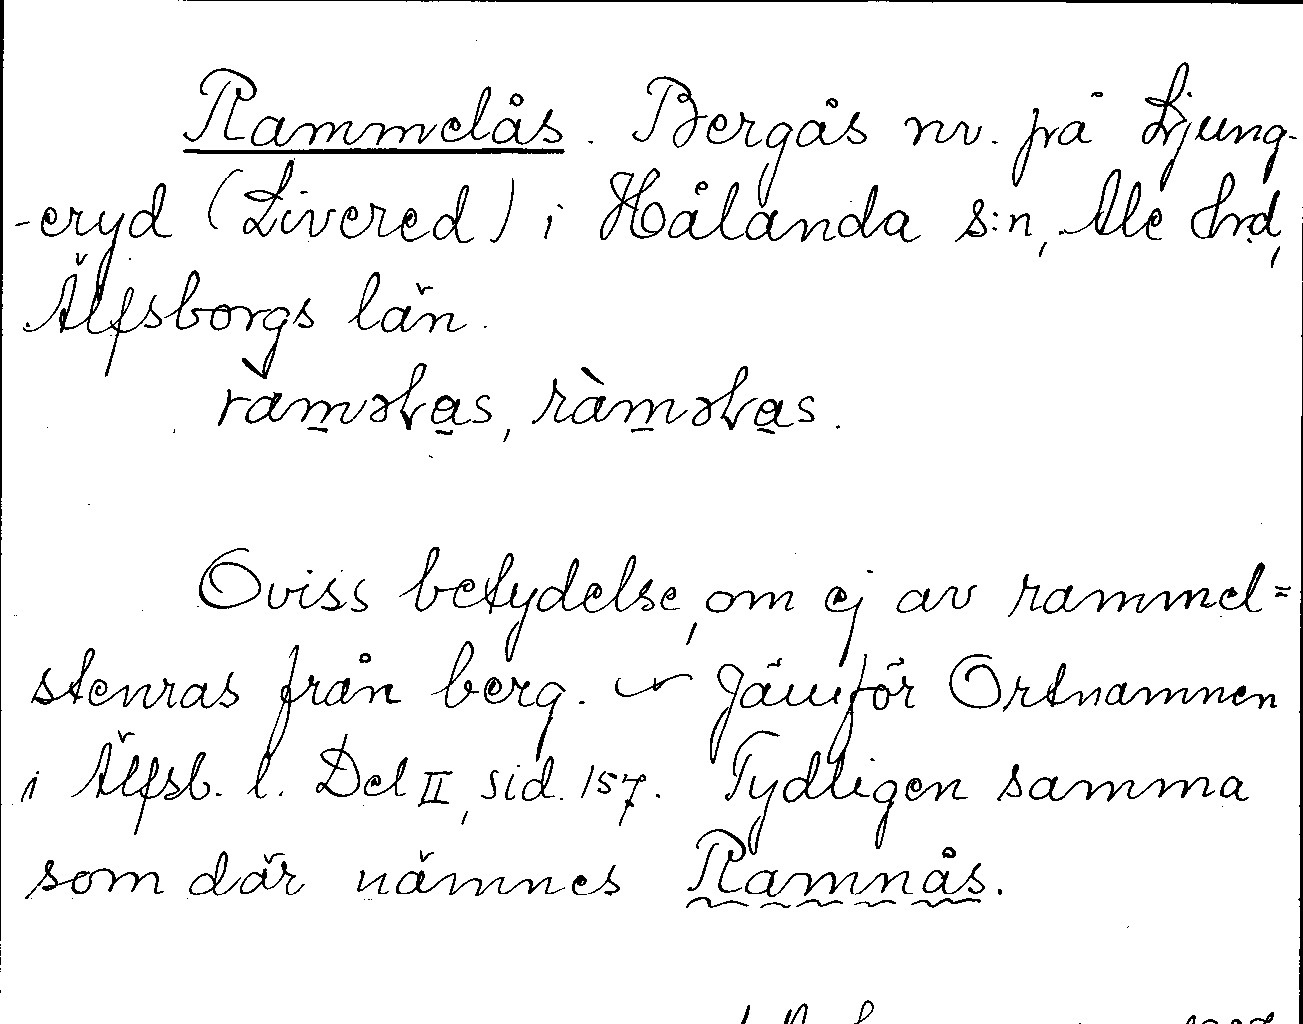 Rammelås. Bergås nv. frå Ljung-
-eryd (Livered) i Hålanda s:n, Ale hrd,
Älfsborgs län.
ràməlas, ràməlas.
Oviss betydelse, om ej av rammel=
stenras från berg. Jämför Ortnamnen
i Älfsb. l. Del II, sid. 157. Tydligen samma
som där nämnes Ramnås.